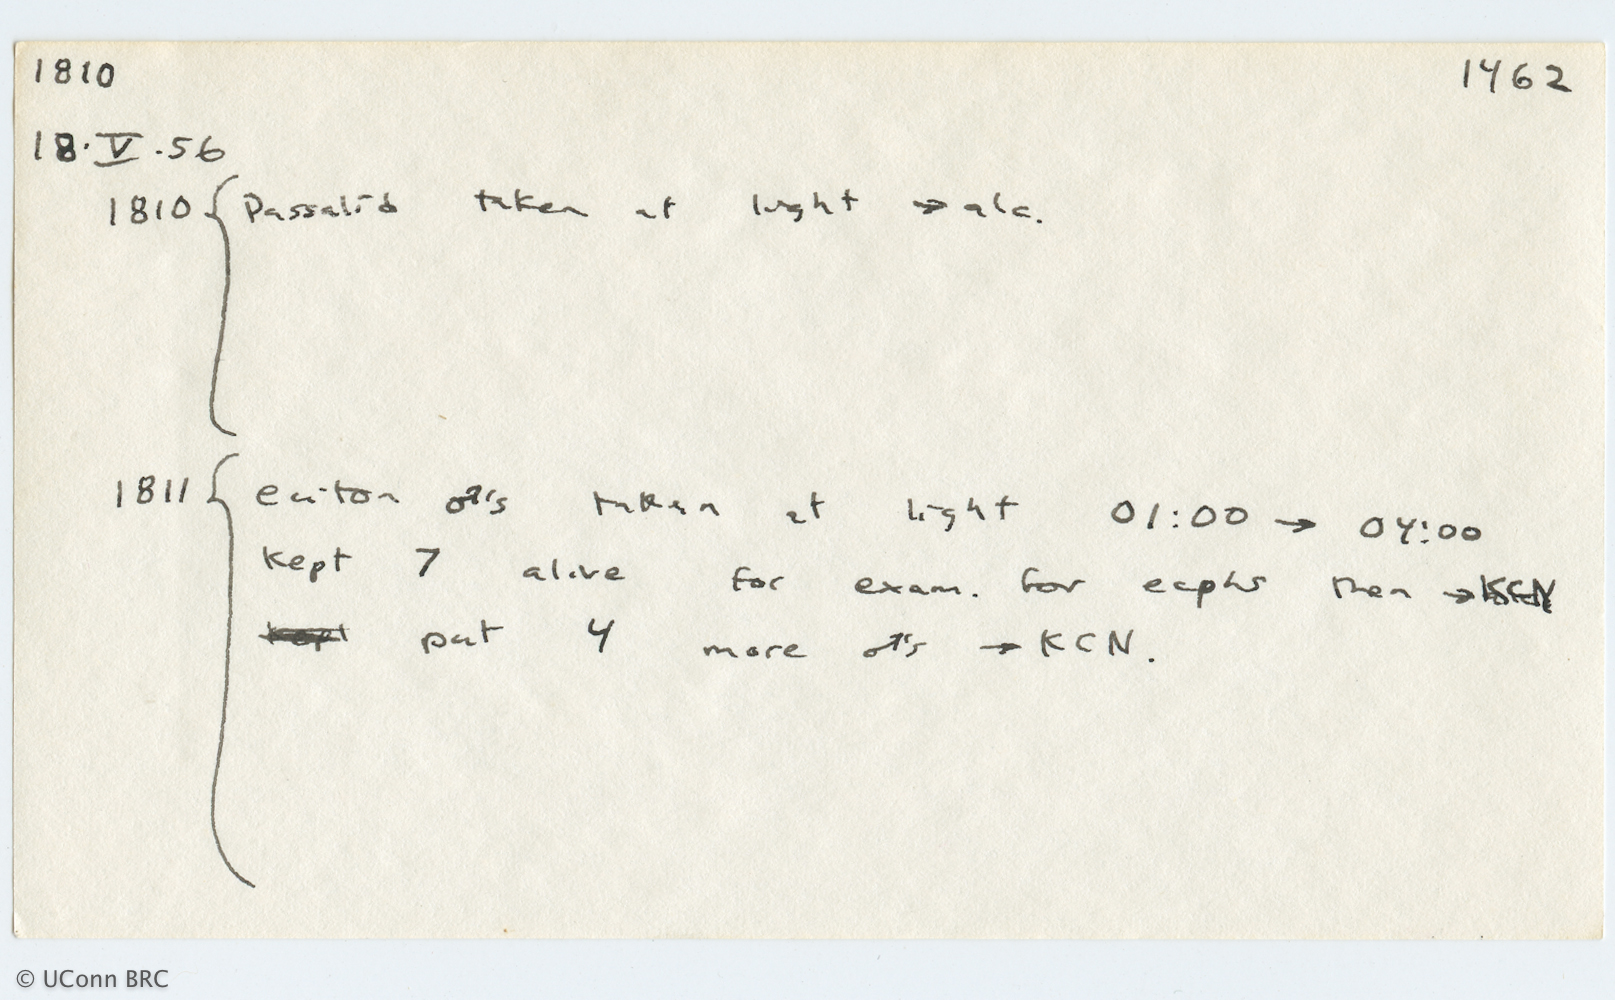 1810 1462
18.V.56
1810 { Passalid taken at light → alc.
1811 { eciton ♂'s taken at light 01:00 → 04:00
Kept 7 alive for exam. for ecphs then → KCN
Kept put 4 more ♂'s → KCN.
© UConn BRC